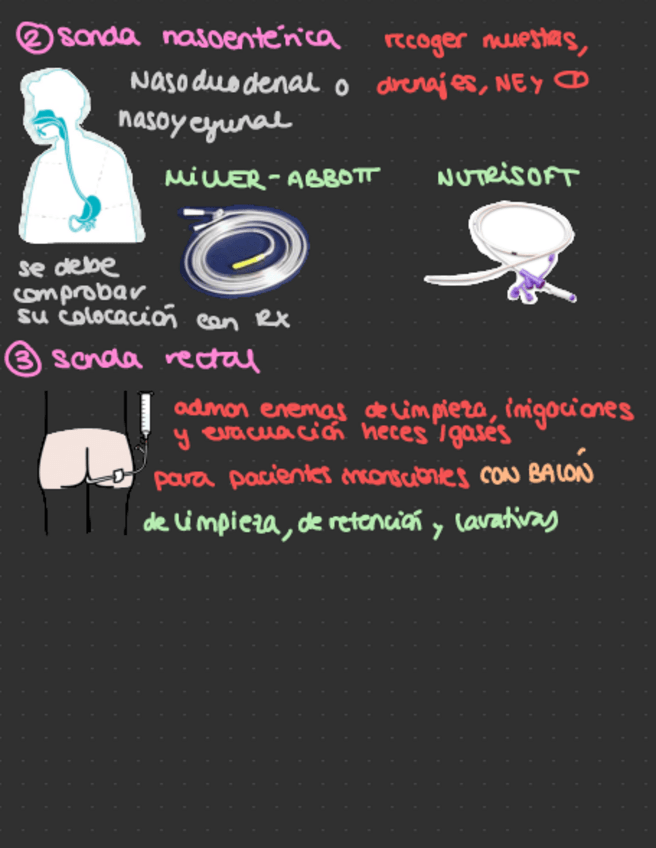 ② sonda nasoentérica
recoger muestras,
drenajes, NE y
Nasoduodenal o
nasoyeyunal
MILLER-ABBOTT
NUTRISOFT
se debe
comprobar
su colocación con RX
③ sonda rectal
admon enemas de limpieza, irrigaciones
y evacuación heces/gases
para pacientes inconscientes CON BALÓN
de limpieza, de retención y lavativas